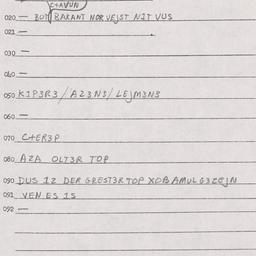 C+AVUN
020 — BUT BARANT NOR VEJST NIT VUS
021 —
030 —
040 —
050 K1P3R3 / AZ3NS / LEJM3N3
060 —
070 C+ER3P
080 AZA OLT3R TOP
090 DUS 1Z DER GREST3R TOP XOB AMUL G3Z@JN
091 VEN ES 1S
092 —